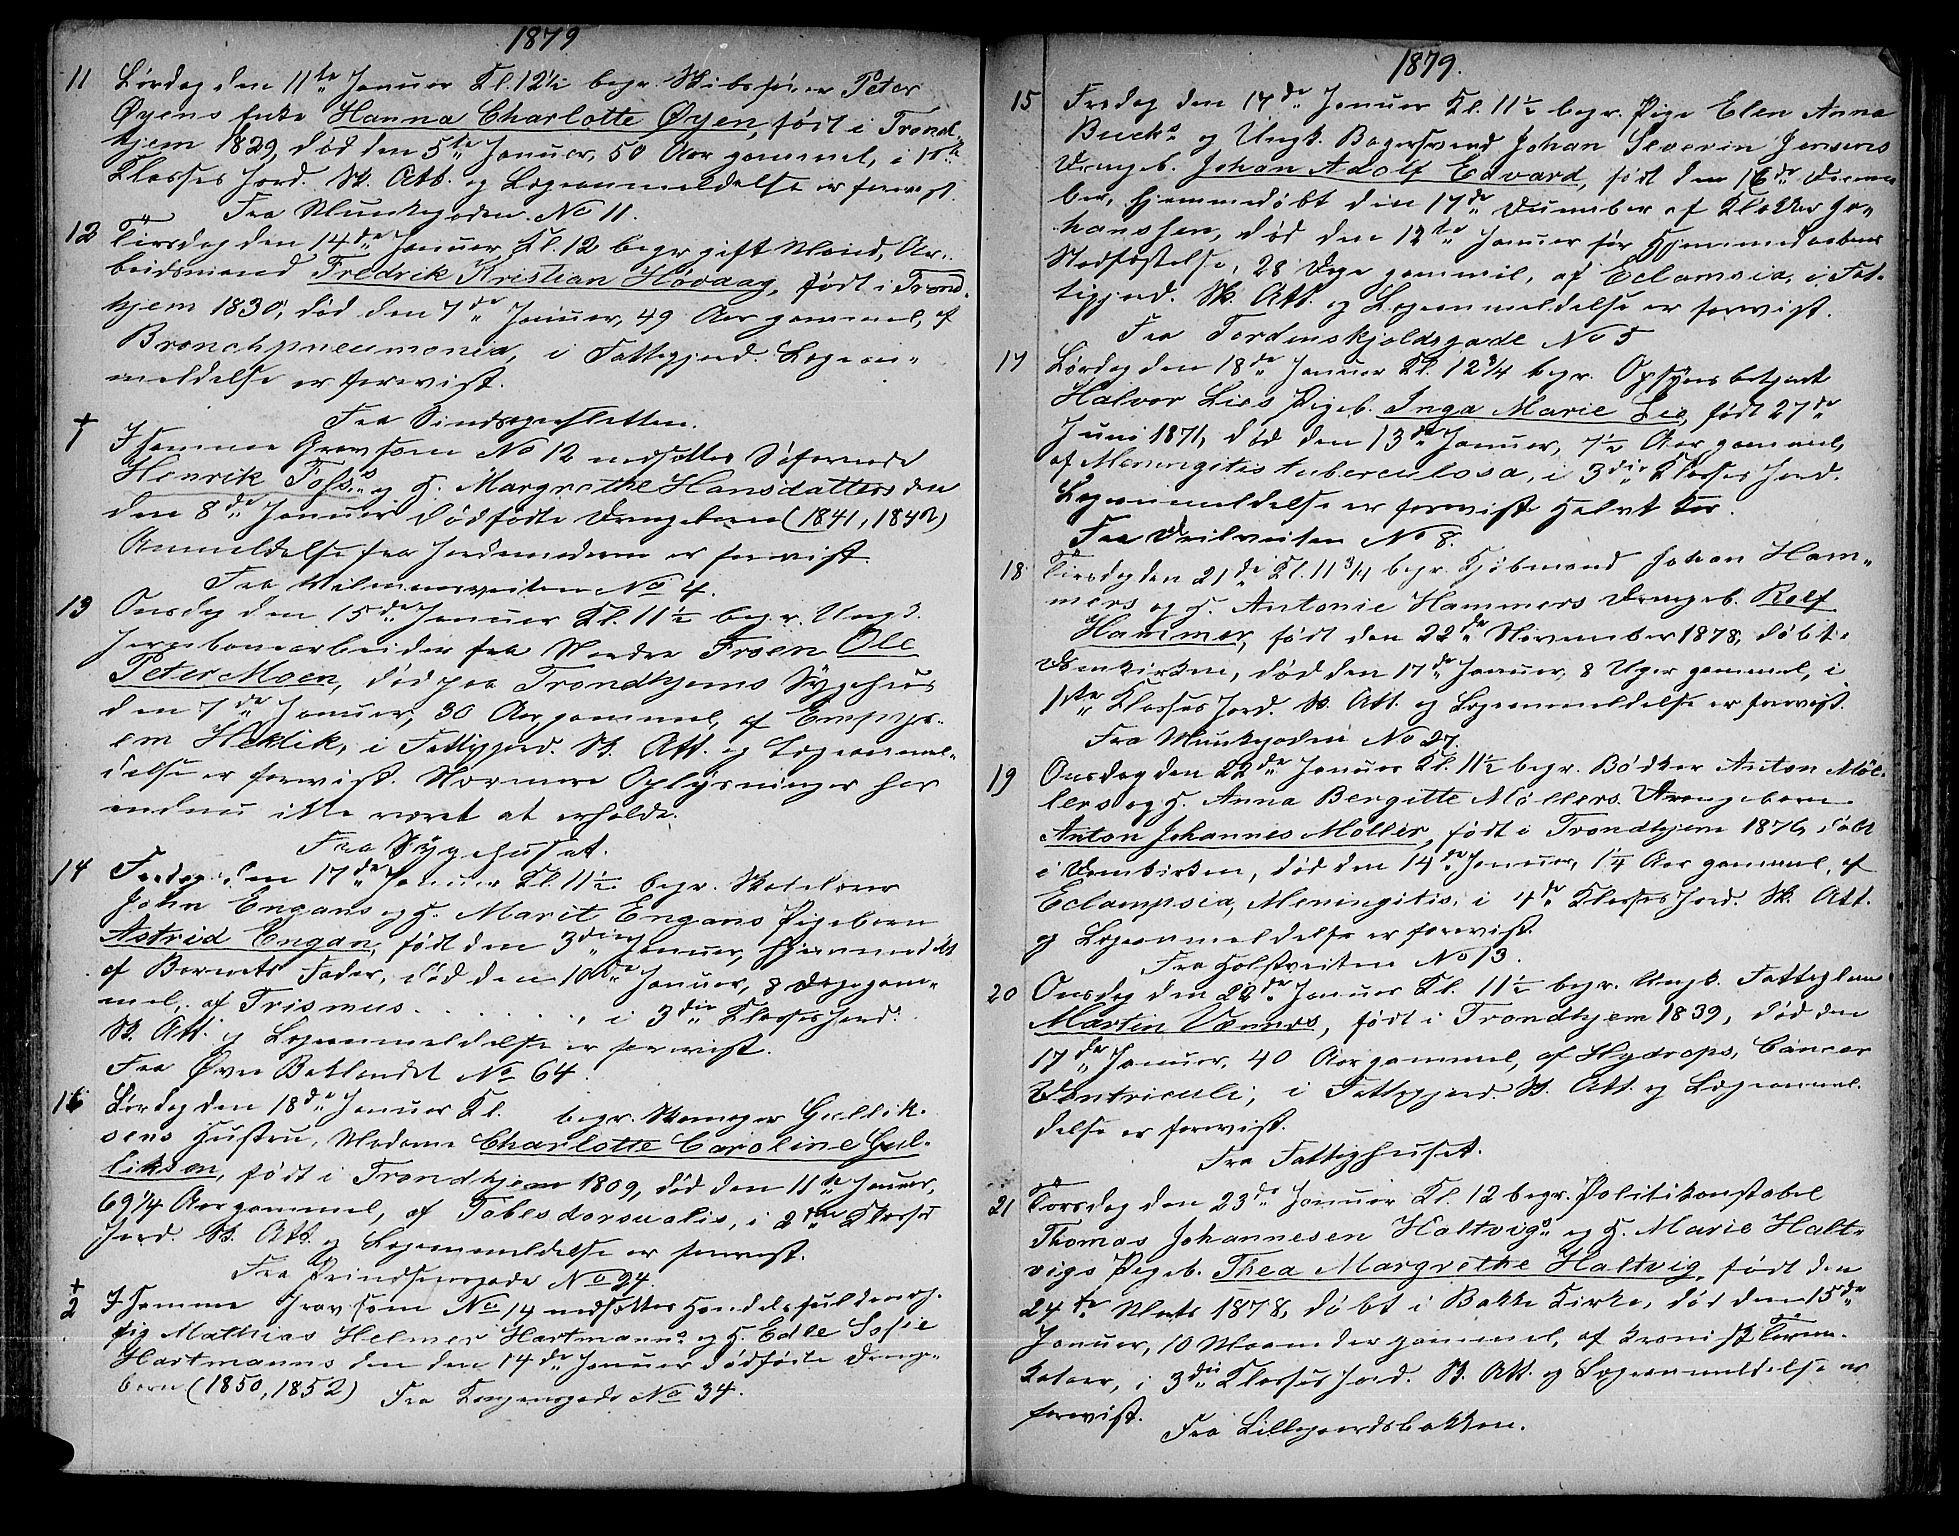 1879
11 Lørdag den 11te Januar Kl. 12½ begr. Skibsfører Peter
Øyens Enke Hanna Charlotte Øyen, født i Trond-
hjem 1829, død den 5te Januar, 50 Aar gammel, i 1ste
Klasses Jord. Sk. Att. og Lægeanmeldelse er forevist.
Fra Munkegaden No 11.
12 Tirsdag den 14de Januar Kl. 12 begr. gift Mand, Ar-
beidsmand Fredrik Kristian Høvaag, født i Trond-
hjem 1830, død den 7de Januar, 49 Aar gammel, af
Bronchpneumonia, i Fattigjord. Lægean-
meldelse er forevist.
Fra Sindsygeasletten.
† 1 I samme Grav som No 12 nedsættes Søfarende
Henrik Foss's og H. Margrethe Hansdatters den
den 8de Januar dødfødte Drengebarn (1841, 1842)
Anmeldelse fra Jordemoderen er forevist.
Fra Wilmannsveiten No 4.
13 Onsdag den 15de Januar Kl. 11½ begr. Ungk.
Jernbanearbeider fra Nordre Froen Ole
Peter Moen, død paa Trondhjems Sygehus
den 7de Januar, 30 Aar gammel, af Empyr-
em Hektik, i Fattigjord. Sk. Att. og Lægeanmel-
delse er forevist. Nærmere Oplysninger har
endnu ikke været at erholde.
Fra Sygehuset.
14 Fredag den 17de Januar Kl. 11½ begr. Skolelærer
John Engans og H. Marit Engans Pigebarn
Astrid Engan, født den 3die Januar, hjemmedøbt
af Barnets Fader, død den 10de Januar, 8 Dage gam-
mel, af Trismus . . . . . . , i 3die Klasses Jord.
Sk. Att. og Lægeanmeldelse er forevist.
Fra Øvre Baklandet No 64.
16 Lørdag den 18de Januar Kl. begr. Skomager Gullik-
sens Hustru, Madame Charlotte Caroline Gul-
liksen, født i Trondhjem 1809, død den 11te Januar,
69¼ Aar gammel, af Tabes dorsualis, i 2den Klasses
Jord. Sk. Att. og Lægeanmeldelse er forevist.
Fra Prindsensgade No 24.
† 2 I samme Grav som No 14 nedsættes Handelsfuldmæg-
tig Mathias Helmer Hartmanns og H. Edle Sofie
Hartmanns den den 14de Januar dødfødte Drenge-
barn (1850, 1852)
Fra Kongensgade No 34.
1879.
15 Fredag den 17de Januar Kl. 11½ begr. Pige Elen Anna
Bucks og Ungk. Bagersvend Johan Severin Jensens
Drengeb. Johan Adolf Edvard, født den 16de Decem-
ber, hjemmedøbt den 17de December af Klokker Jo-
hanssen, død den 12te Januar før Hjemmedaabens
Stadfæstelse, 28 Dage gammel, af Eclamsia, i Fat-
tigjord. Sk. Att. og Lægeanmeldelse er forevist.
Fra Tordenskjoldsgade No 5
17 Lørdag den 18de Januar Kl. 12¾ begr. Opsynsbetjent
Halvor Lies Pigeb. Inga Marie Lie, født 27de
Juni 1871, død den 13de Januar, 7½ Aar gammel,
af Meningitis tuberculosa, i 3die Klasses Jord.
Lægeanmeldelse er forevist
Fra Dreilveiten No 8.
18 Tirsdag den 21de Kl. 11¾ begr. Kjøbmand Johan Ham-
mers og H. Antonie Hammers Drengeb. Rolf
Hammer, født den 22de November 1878, døbt i
Domkirken, død den 17de Januar, 8 Uger gammel, i
1ste Klasses Jord. Sk. Att. og Lægeanmeldelse er forevist.
Fra Munkegaden No 27.
19 Onsdag den 22de Januar Kl. 11½ begr. Bødker Anton Møl-
lers og H. Anna Bergitte Møllers Drengebarn
Anton Johannes Møller, født i Trondhjem 1877, døbt
i Domkirken, død den 14de Januar, 1¼ Aar gammel, af
Eclampsia, Meningitis, i 4de Klasses Jord. Sk. Att.
og Lægeanmeldelse er forevist.
Fra Holstveiten No 13.
20 Onsdag den 22de Januar Kl. 11½ begr. Ungk. Fattiglem
Martin Vennes, født i Trondhjem 1839, død den
17de Januar, 40 Aar gammel, af Hydrops, Cancer
Ventriculi; i Fattigjord. Sk. Att. og Lægeanmel-
delse er forevist.
Fra Fattighuset.
21 Torsdag den 23de Januar Kl. 12 begr. Politikonstabel
Thomas Johannesen Haltvigs og H. Marie Halt-
vigs Pigeb. Thea Margrethe Haltvig, født den
24de Marts 1878, døbt i Bakke Kirke, død den 15de
Januar, 10 Maaneder gammel, af kronisk Tarm-
katarr, i 3die Klasses Jord. Sk. Att. og Lægeanmeldelse er
forevist.
Fra Lillegaardsbakken.